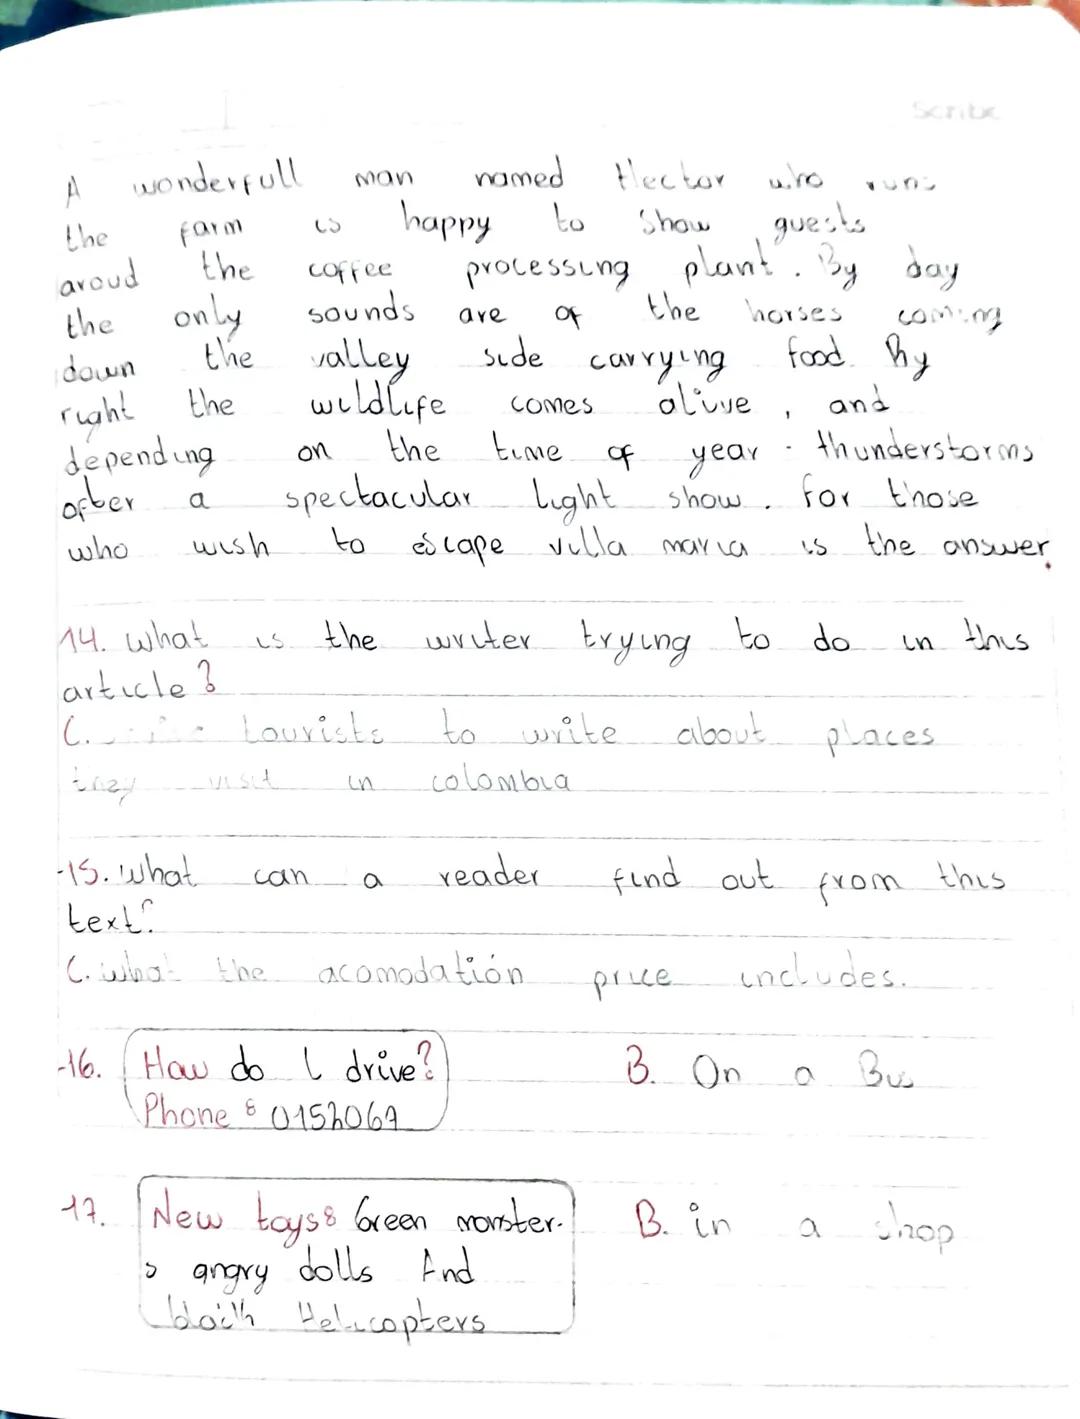 Scribe
A wonderfull man named Hector who runs
the farm is happy to show guests
aroud the coffee processing plant. By day
the only sounds are of the horses coming
down the valley side carrying food. By
right the wildlife comes alive, and
depending on the time of year - thunderstorms
ofter a spectacular light show. for those
who wish to escape villa maria is the answer.
14. what is the writer trying to do in this
article?
C. tourists to write about places
they visit in colombia
-15. what can a reader find out from this
text?
C. what the acomodatión price includes.
-16. How do I drive? B. On a Bus
Phone: 0152067
17. New toys: Green monster- B. in a shop
s angry dolls And
Helicopters